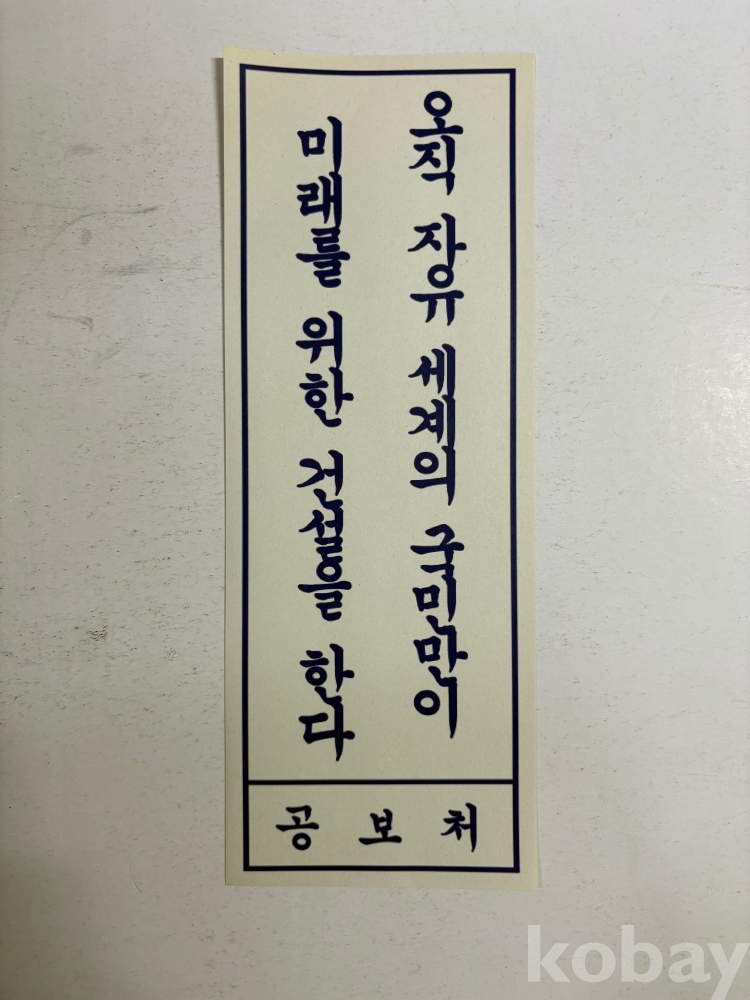 오직 자유 세계의 국민만이
미래를 위한 건설을 한다
공보처
kobay